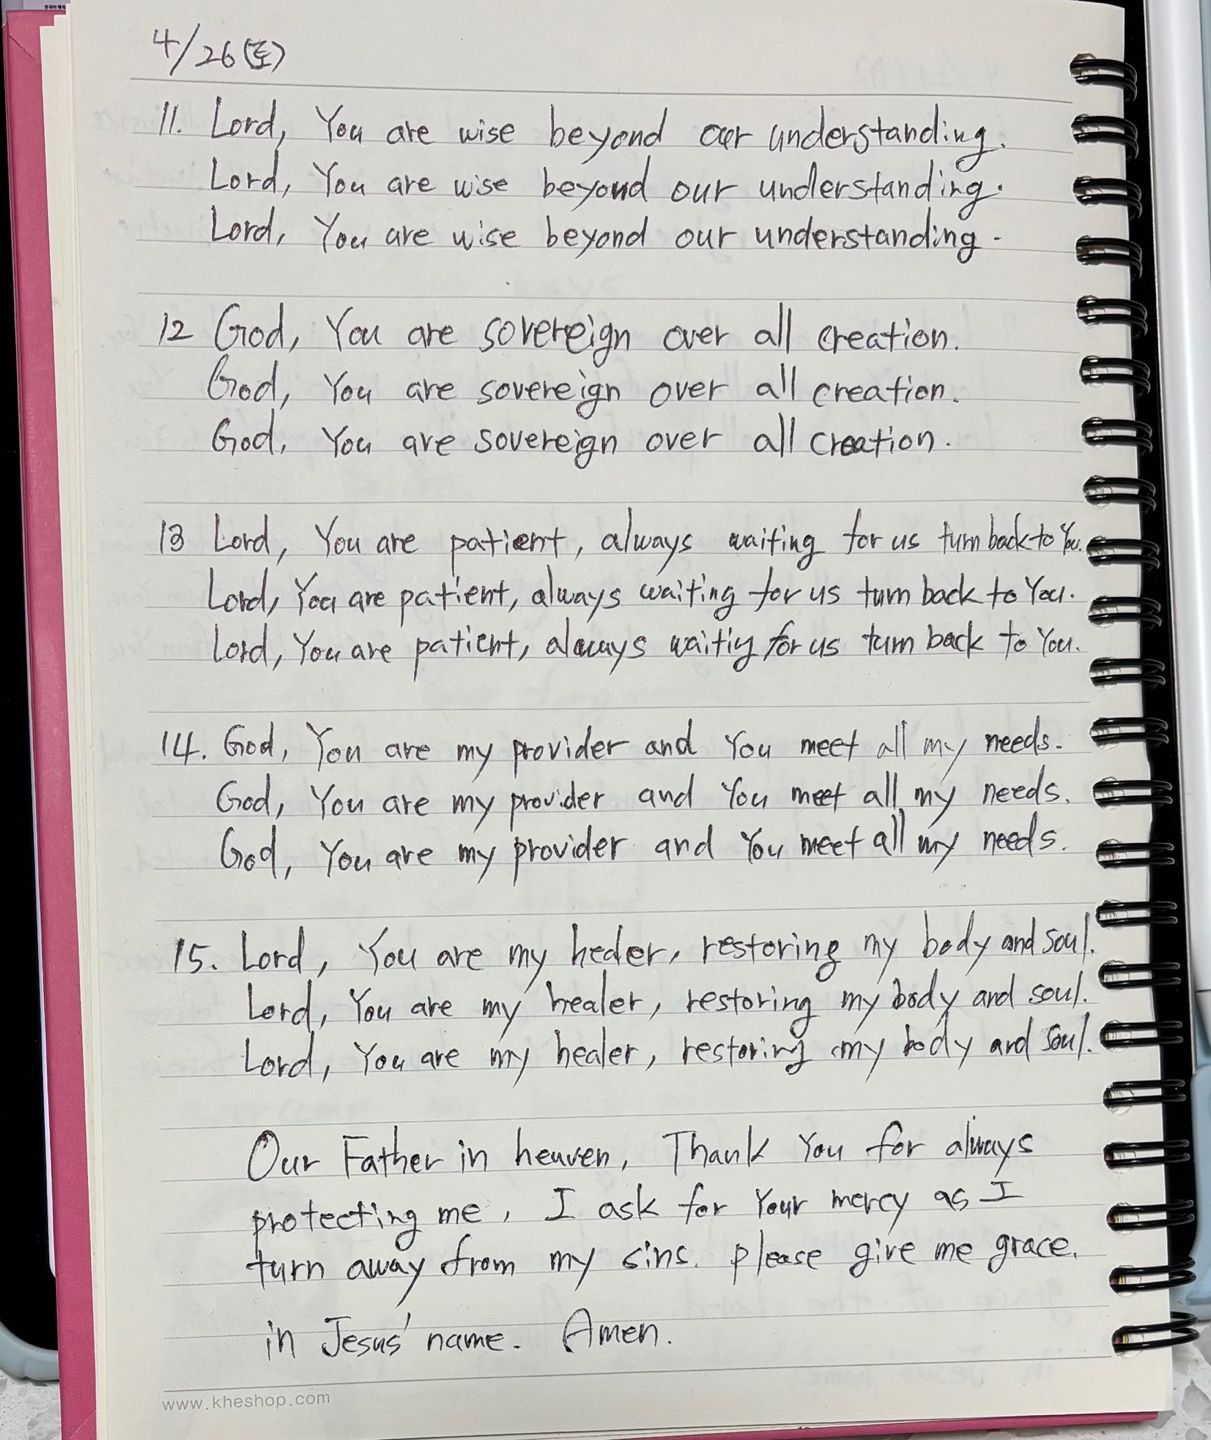 4/26(토)
11. Lord, You are wise beyond our understanding.
Lord, You are wise beyond our understanding.
Lord, You are wise beyond our understanding.
12 God, You are sovereign over all creation.
God, You are sovereign over all creation.
God, You are sovereign over all creation.
13 Lord, You are patient, always waiting for us turn back to You.
Lord, You are patient, always waiting for us turn back to You.
Lord, You are patient, always waitiy for us turn back to You.
14. God, You are my provider and You meet all my needs.
God, You are my provider and You meet all my needs.
God, You are my provider and You meet all my needs.
15. Lord, You are my healer, restoring my body and soul.
Lord, You are my healer, restoring my body and soul.
Lord, You are my healer, restoring my body and soul.
Our Father in heaven, Thank You for always
protecting me, I ask for Your mercy as I
turn away from my sins. please give me grace.
in Jesus' name. Amen.
www.kheshop.com